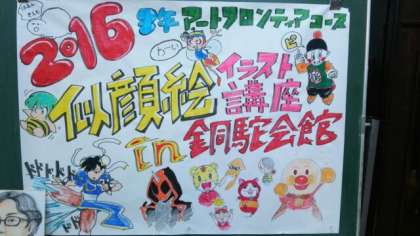 2016 青年アートフロンティアコース
わーい
ピ
似顔絵 イラスト
講座
in 銅駝会館
ドドドド